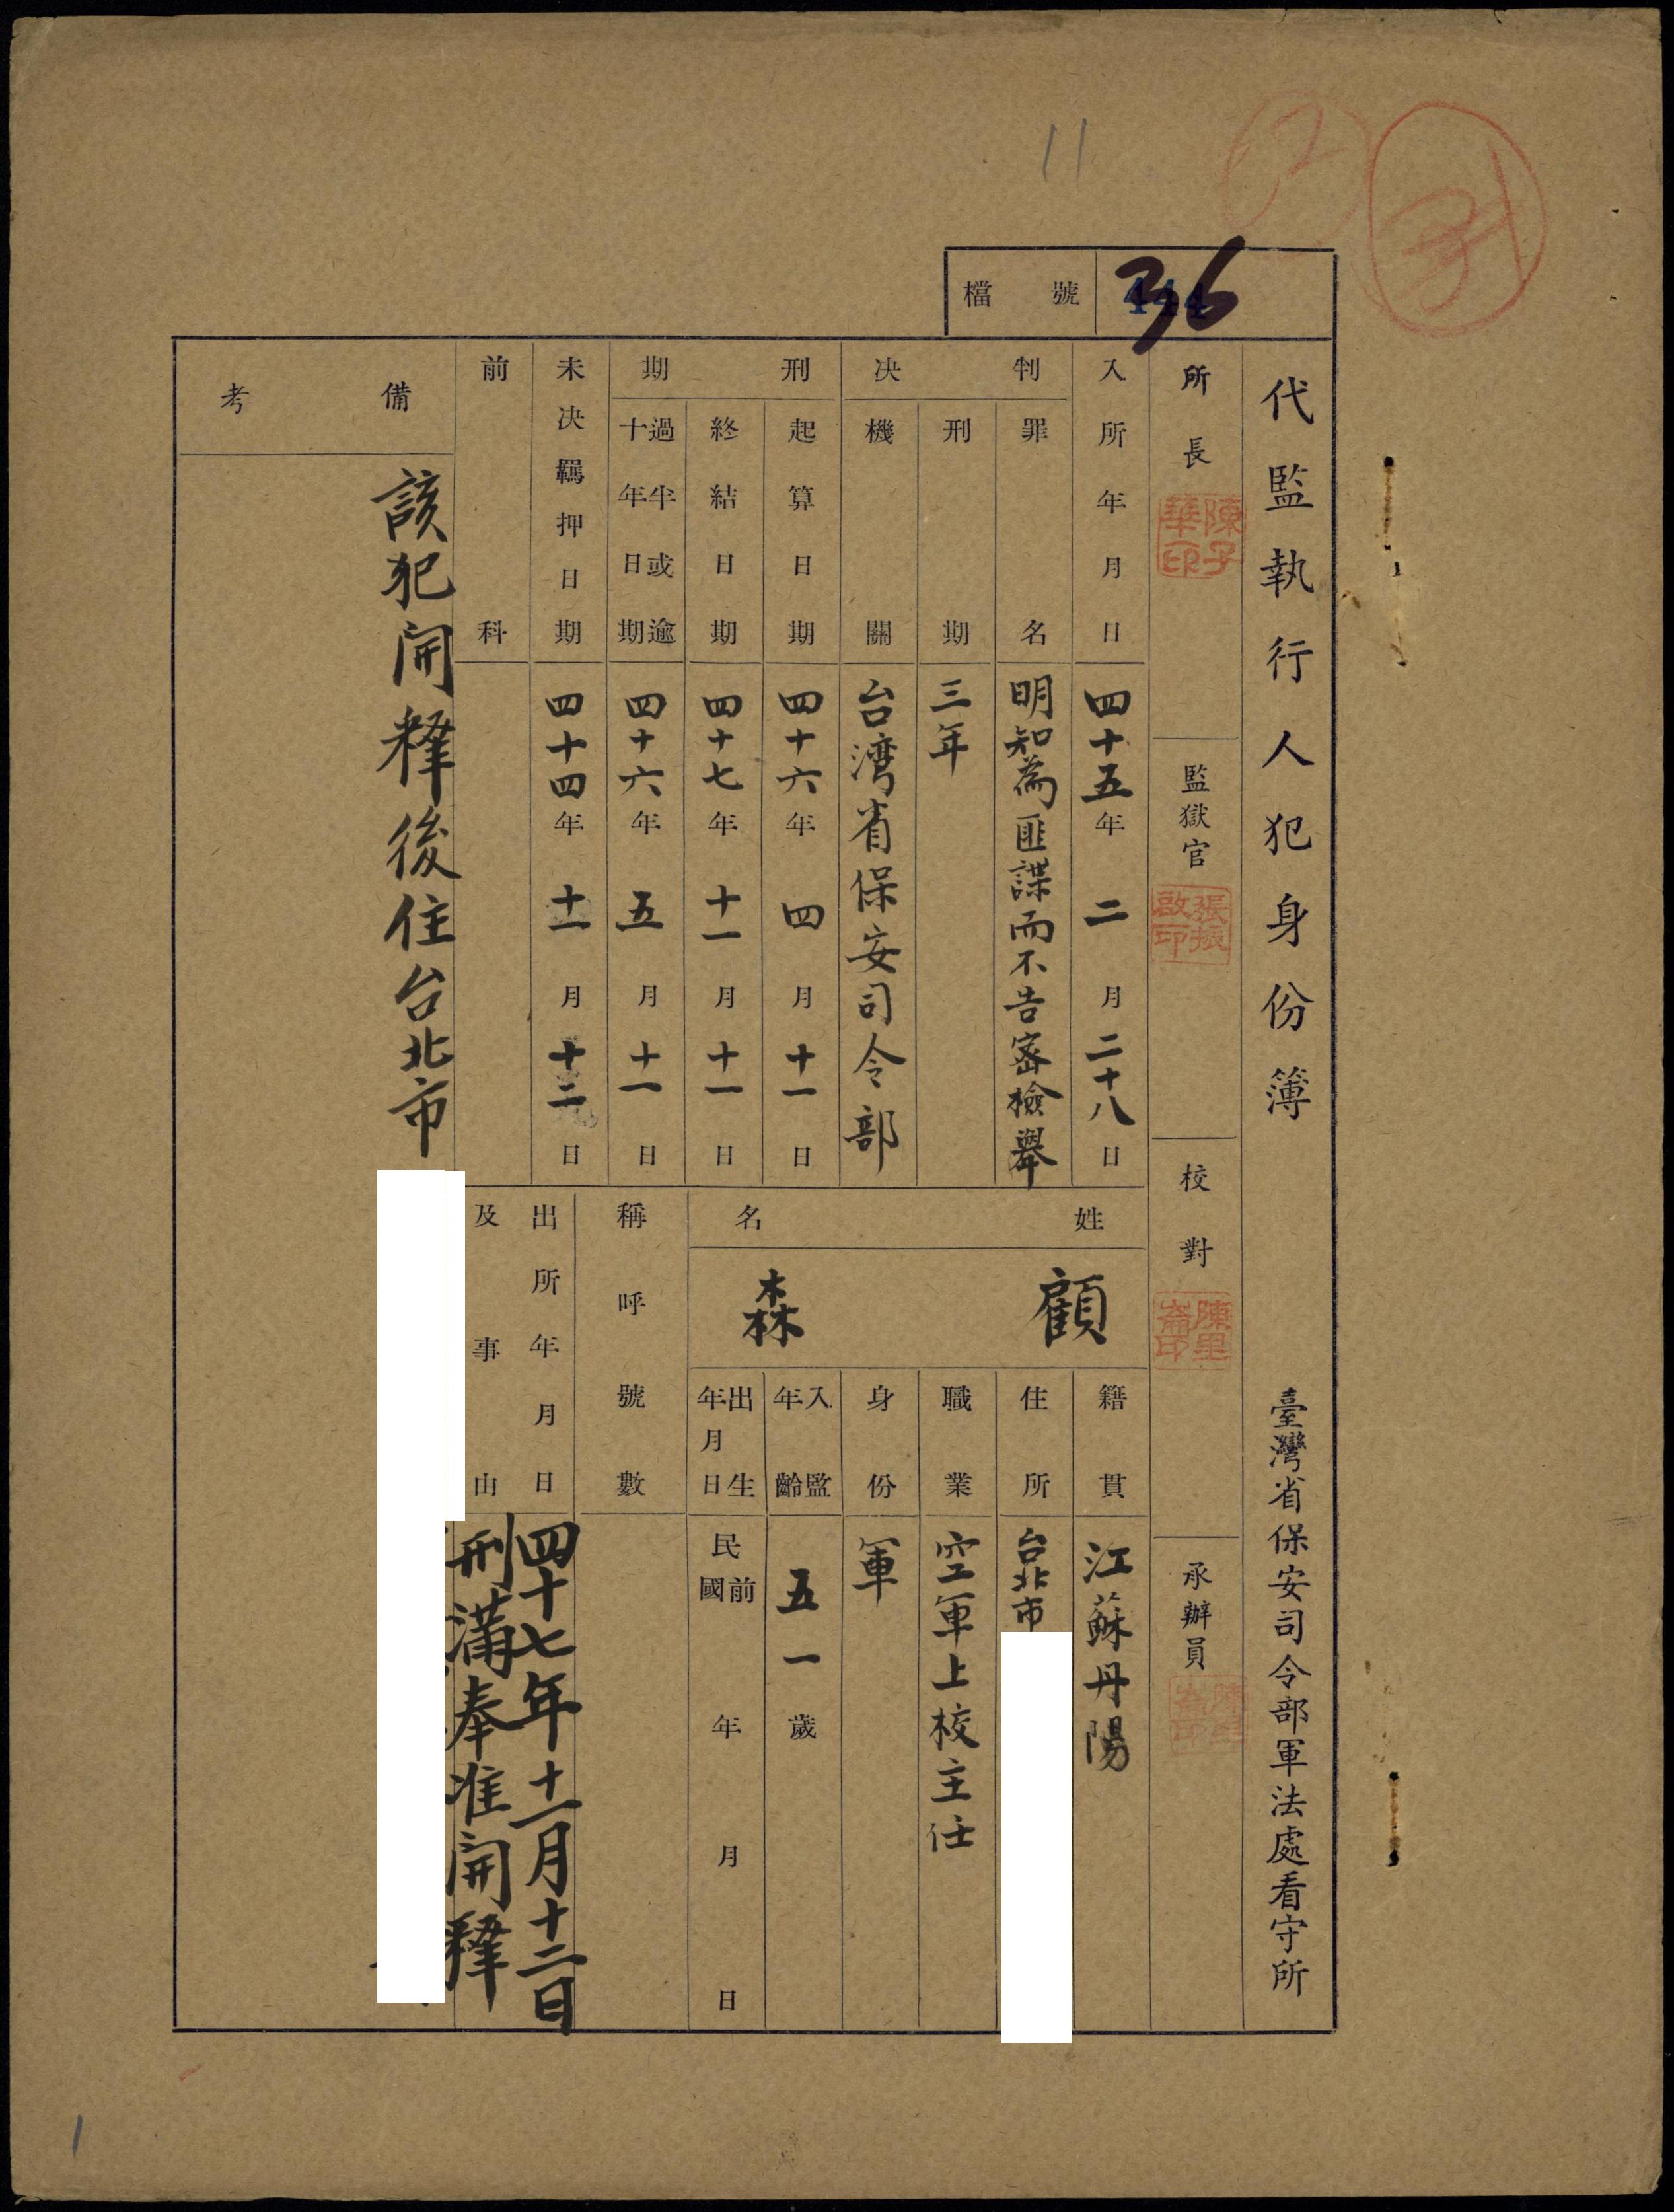 11
檔號
36
代監執行人犯身份簿
臺灣省保安司令部軍法處看守所
所長
陳子華印
監獄官
張振啟印
校對
承辦員
入所年月日
四十五年二月二十八日
判決
罪名
明知為匪諜而不告密檢舉
刑期
三年
機關
台湾省保安司令部
刑期
起算日期
四十六年四月十一日
終結日期
四十七年十一月十一日
過半或逾十年日期
四十六年五月十一日
未決羈押日期
四十四年十一月十二日
前科
姓名
顧森
籍貫
江蘇丹陽
住所
台北市
職業
空軍上校主任
身份
軍
入監年齡
五一歲
出生年月日
民國前 年 月 日
稱呼號數
出所年月日及事由
四十七年十一月十二日
刑滿奉准開釋
備考
該犯開釋後住台北市
1